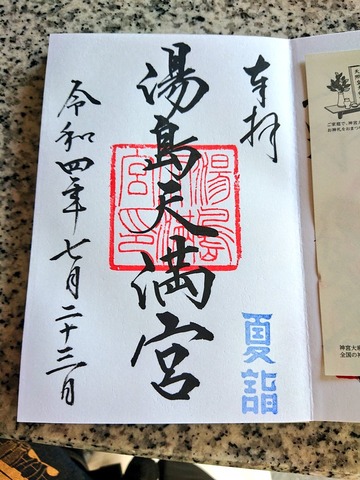 奉拝
湯島天満宮
令和四年七月二十三日
夏詣
湯島
天満
宮印